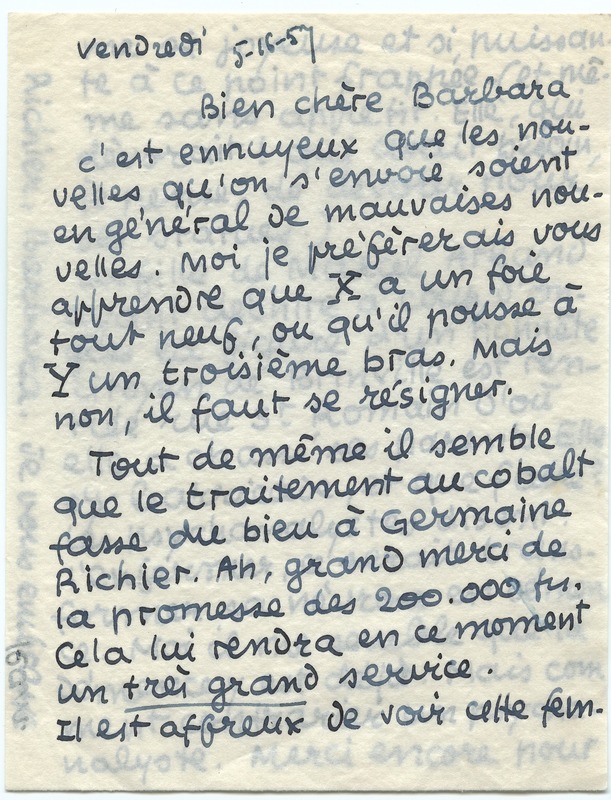 Vendredi 5-16-57
Bien chère Barbara
c'est ennuyeux que les nou-
velles qu'on s'envoie soient
en général de mauvaises nou-
velles. Moi je préfèrerais vous
apprendre que X a un foie
tout neuf, ou qu'il pousse à
Y un troisième bras. Mais
non, il faut se résigner.
Tout de même il semble
que le traitement au cobalt
fasse du bien à Germaine
Richier. Ah, grand merci de
la promesse des 200.000 frs.
Cela lui rendra en ce moment
un très grand service.
Il est affreux de voir cette fem-